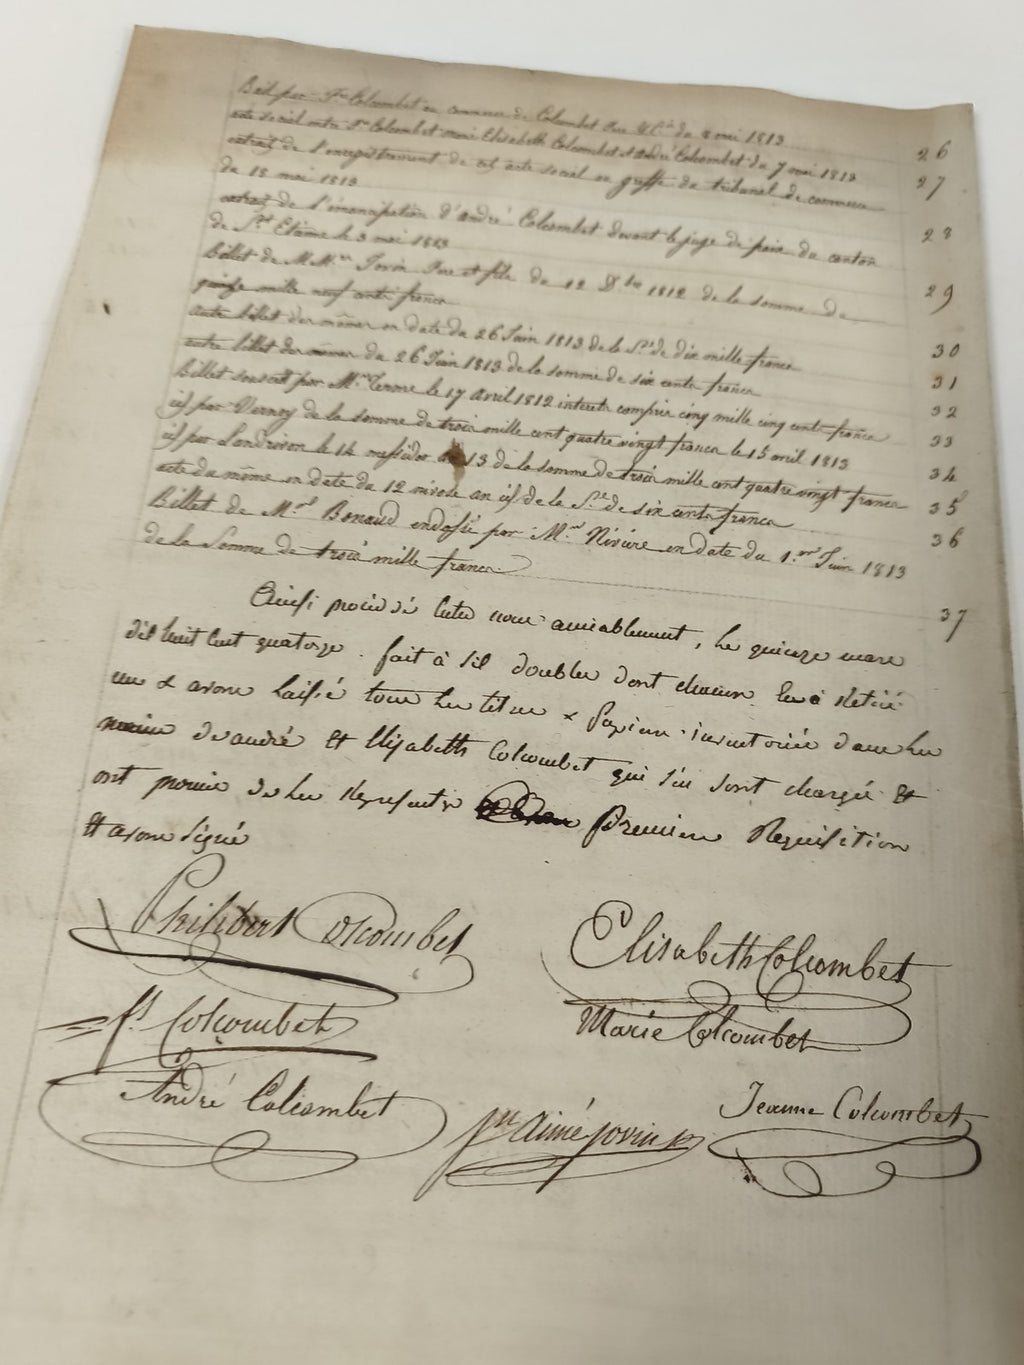 Bail par Fois Colcombet en commun de Colombet Pere & Cie du 8 mai 1813 26
acte social entre Fois Colcombet Marie Elisabeth Colcombet et André Colcombet du 7 mai 1813 27
extrait de l'enregistrement de cet acte social au greffe du tribunal de commerce
du 18 mai 1813 28
extrait de l'émancipation d'André Colcombet devant le juge de paix du canton
de St Etienne le 3 mai 1813 29
Billet de MMrs Jovin Pere et fils du 12 Xbre 1812 de la somme de
quinze mille neuf cents francs 30
autre billet des mêmes en date du 26 Juin 1813 de la Se de dix mille francs 31
autre billet des mêmes du 26 Juin 1813 de la somme de six cents francs 32
Billet souscrit par Mr Terme le 17 avril 1812 interets compris cinq mille cinq cents francs 33
id par Vernoy de la somme de trois mille cent quatre vingt francs le 15 avril 1813 34
id par Landrivon le 14 messidor an 13 de la somme de trois mille cent quatre vingt francs 35
acte du même en date du 12 nivose an id de la Se de six cents francs 36
Billet de Mrs Bonaud endossé par Mrs Nivière en date du 1er Juin 1813
de la Somme de trois mille francs 37
Ainsi procédé entre nous amiablement, le quinze mars
dil huit cent quatorze. fait à six doubles dont chacun en a retiré
un & avons laissé tous les titres & papiers inventoriés dans les
mains de andré et Elizabeth Colcombet qui s'en sont chargés et
ont promis de les representer premiere Requisition
et avons signé
Philibert Colcombet Elisabeth Colcombet
fs Colcombet Marie Colcombet
André Colcombet jn aimé jovin Jeanne Colcombet